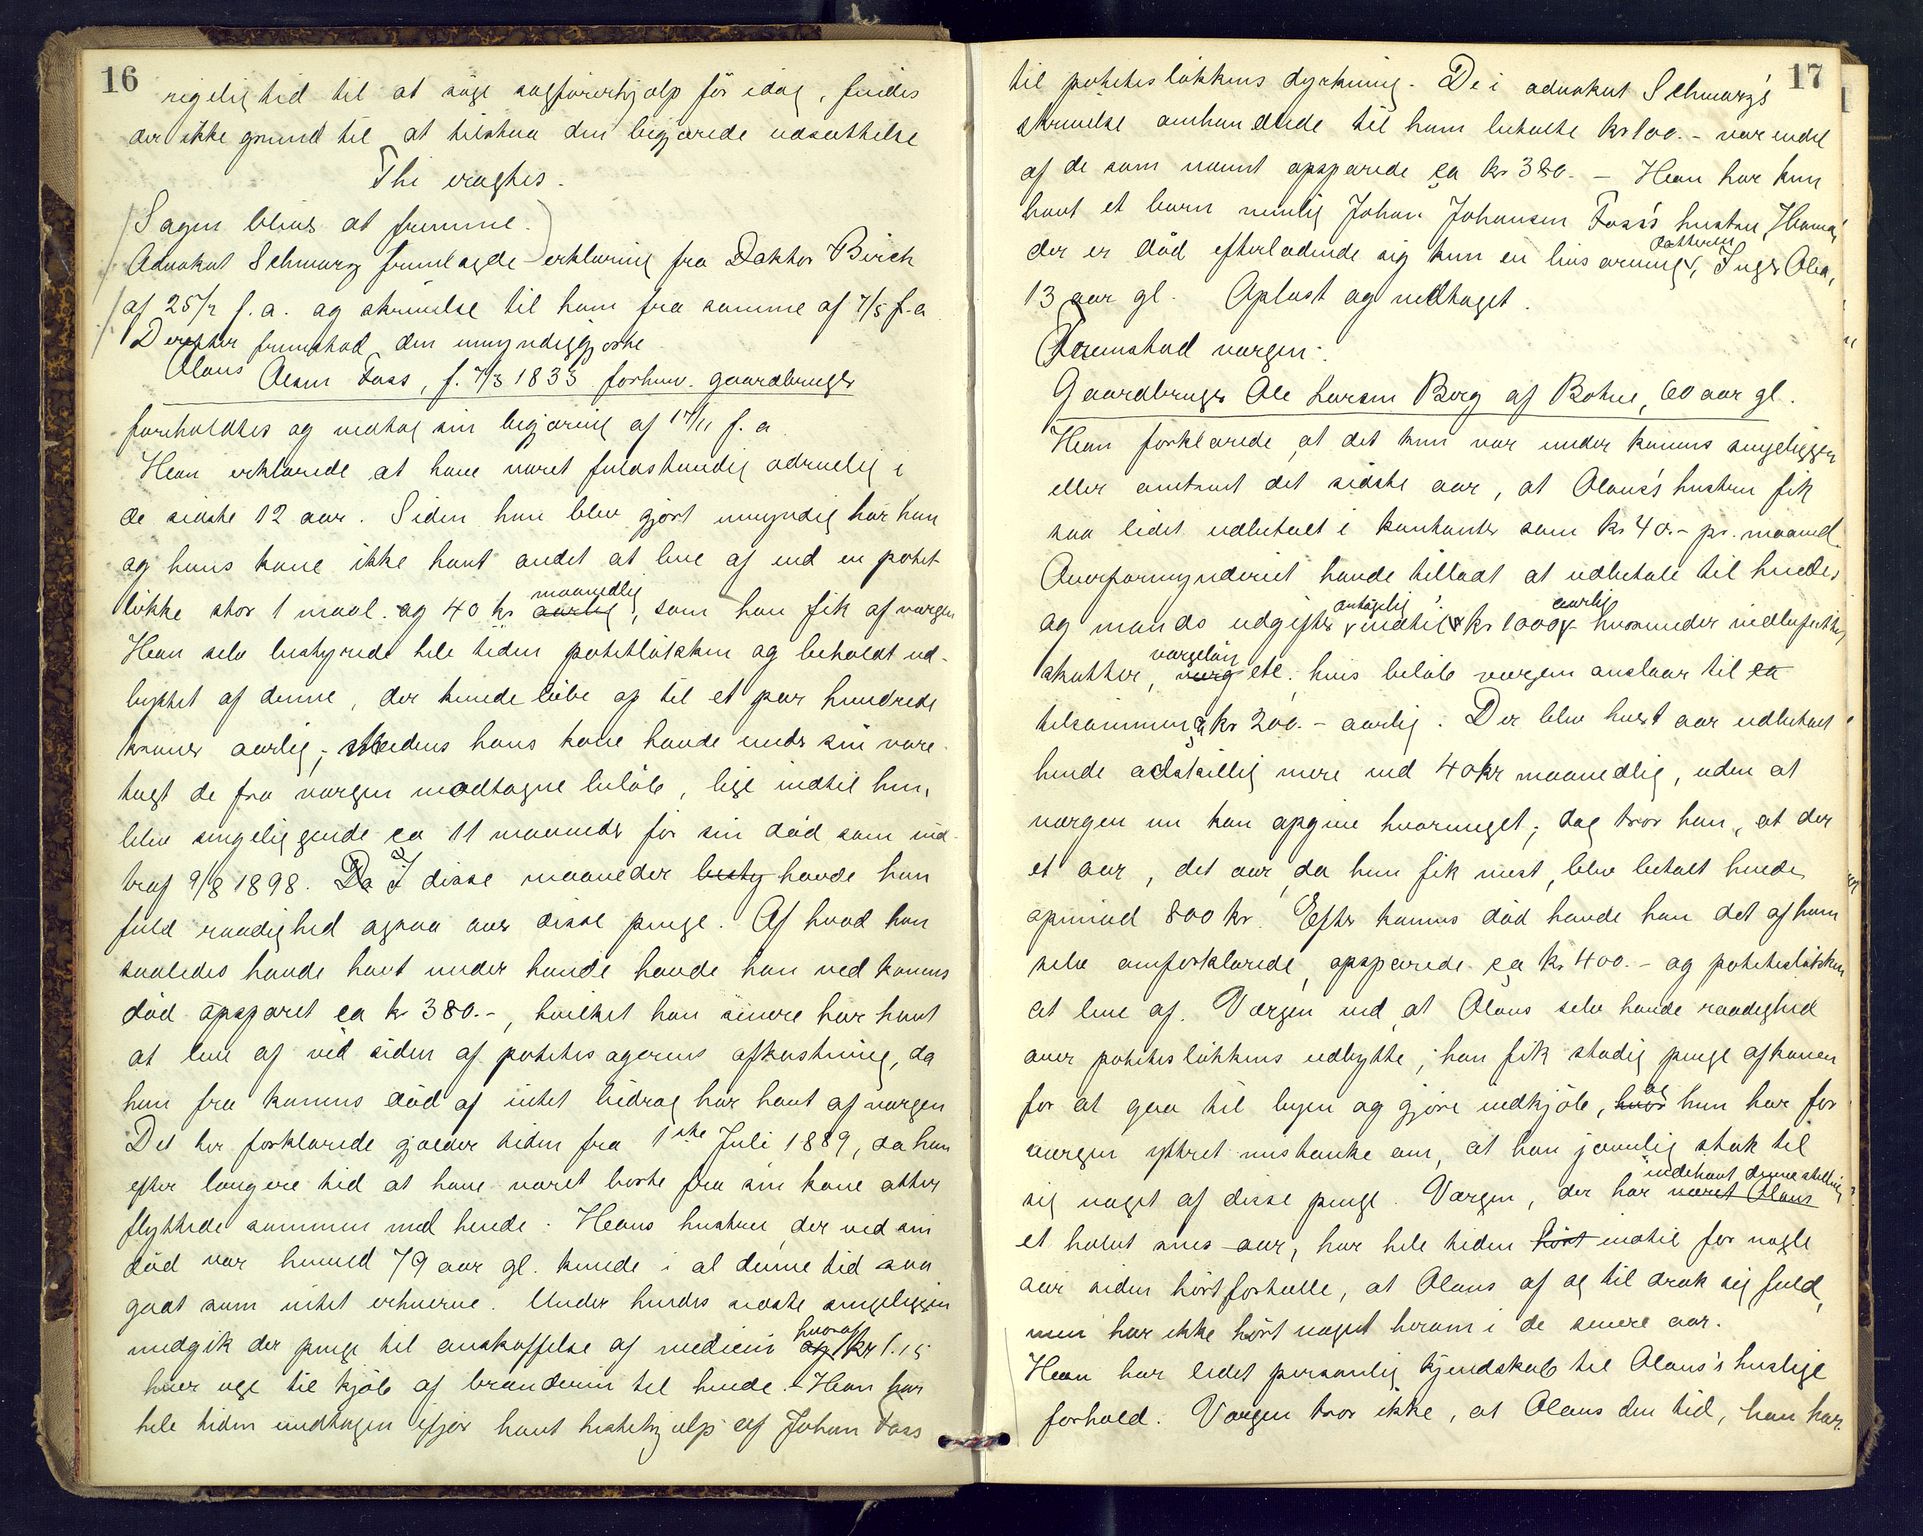 16
rigelig tid til at søge sagførerhjælp før idag, findes
der ikke grund til at tilstaa den begjærede udsættelse
Thi eragtes.
Sagen blive at fremme.
Advokat Schwarz fremlagde erklæring fra Doktor Birch
af 25/2 f.a. og skrivelse til ham fra samme af 7/5 f.a
Derefter fremstod den umyndiggjorte
Olaus Olsen Foss, f. 7/3 1833 forhenv. gaardbruger
foreholdtes og vedtog sin begjæring af 17/11 f.a
Han erklærede at have været fuldstændig ædruelig i
de sidste 12 aar. Siden han blev gjort umyndig har han
og hans kone ikke havt andet at leve af end en potet
maanedlig
løkke stor 1 maal og 40 kr aarlig, som han fik af værgen
Han selv bestyrede hele tiden potetløkken og beholdt ud-
byttet af denne, der kunde løbe op til et par hundrede
kroner aarlig, medens hans kone havde under sin vare-
tægt de fra værgen modtagne beløb, lige indtil hun
blev sengeliggende ca 11 maaneder før sin død som ind-
traf 9/8 1898. Da I disse maaneder besty havde han
fuld raadighed ogsaa over disse penge. Af hvad han
saaledes havde havt under hænde havde han ved konens
død opsparet ca kr 380.-, hvilket han senere har havt
at leve af ved siden af potetesagerens afkastning, da
han fra konens død af intet bidrag har havt af værgen
Det her forklarede gjælder tiden fra 1ste Juli 1889, da han
efter længere tid at have været borte fra sin kone atter
flyttede sammen med hende. Hans hustru, der ved sin
død var henved 79 aar gl. kunde i al denne tid saa
godt som intet erhverve. Under hendes sidste sengeliggen
hvoraf
medgik der penge til anskaffelse af medicin og kr 1.15
hver uge til kjøb af brændevin til hende. - Han har
hele tiden undtagen ifjor havt hestehjælp af Johan Foss
17
til potetesløkkens dyrkning. De i advokat Schwarz's
skrivelse omhandlede til ham betalte kr 100.- var endel
af de som nævnt opsparede ca kr 380. - Han har kun
havt et barn nemlig Johan Johansen Foss's hustru, Hanna,
datteren
der er død efterladende sig kun en livsarving, Inger Olea,
13 aar gl. Oplæst og vedtaget.
Fremstod værgen:
Gaardbruger Ole Larsen Berg af Botne, 60 aar gl.
Han forklarede, at det kun var under konens sengeliggen
eller omtrent det sidste aar, at Olaus's hustru fik
saa lidet udbetalt i kontanter som kr 40.- pr. maaned.
Overformynderiet havde tilladt at udbetale til hendes
antagelig aarlig
og mands udgifter indtil kr 1000 hvorunder indbefattet
værgeløn
skatter, værg etc. hvis beløb værgen anslaar til ca
tilsammen ca kr 200.- aarlig. Der blev hvert aar udbetalt
hende adskillig mere end 40 kr maanedlig, uden at
værgen nu kan opgive hvormeget; dog tror han, at der
et aar, det aar, da hun fik mest, blev betalt hende
opimod 800 kr. Efter konens død havde han det af ham
selv omforklarede, opsparede ca kr. 400.- og potetesløkken
at leve af. Værgen ved, at Olaus selv havde raadighed
over potetesløkkens udbytte; han fik stadig penge af konen
og
for at gaa til byen og gjøre indkjøb, hvor hun har for
værgen yttret mistanke om, at han jævnlig stak til
indehavt denne stilling
sig noget af disse penge. Værgen, der har været Olaus
et halvt snes aar, har hele tiden hørt indtil for nogle
aar siden hørt fortælle, at Olaus af og til drak sig fuld,
men har ikke hørt noget herom i de senere aar.
Han har lidet personlig kjendskab til Olaus's huslige
forhold. Værgen tror ikke, at Olaus den tid, han har